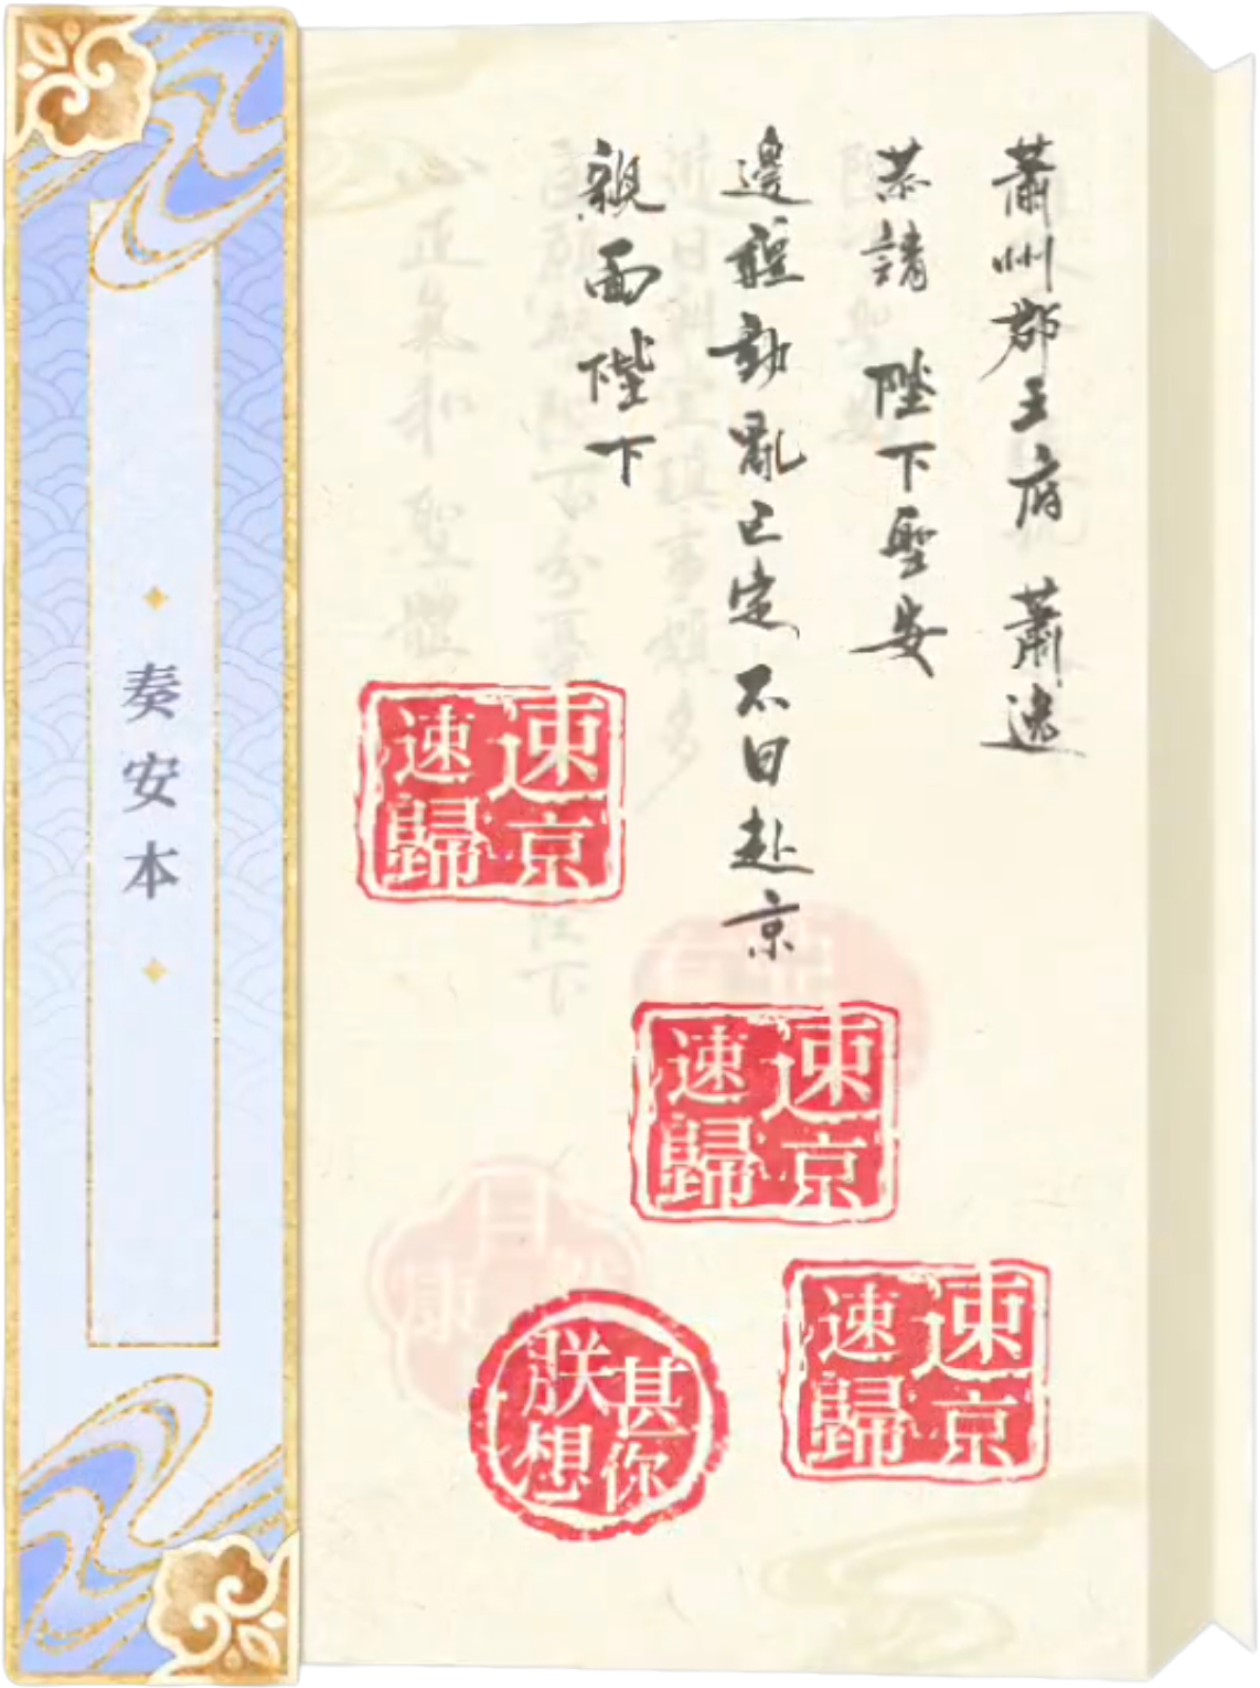 蕭州郡王府 蕭逸
恭請 陛下聖安
邊疆動亂已定不日赴京
親面陛下
速速
歸京
速速
歸京
速速
歸京
朕甚
想你
奏安本